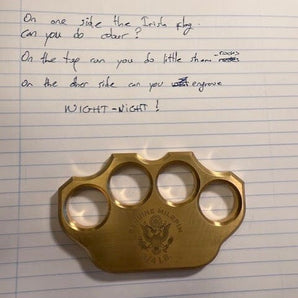 On one side the Irish flag.
Can you do colour?
On the top can you do little shamrocks
On the other side can you engrave
NIGHT-NIGHT!
GENUINE
1/4 LB.